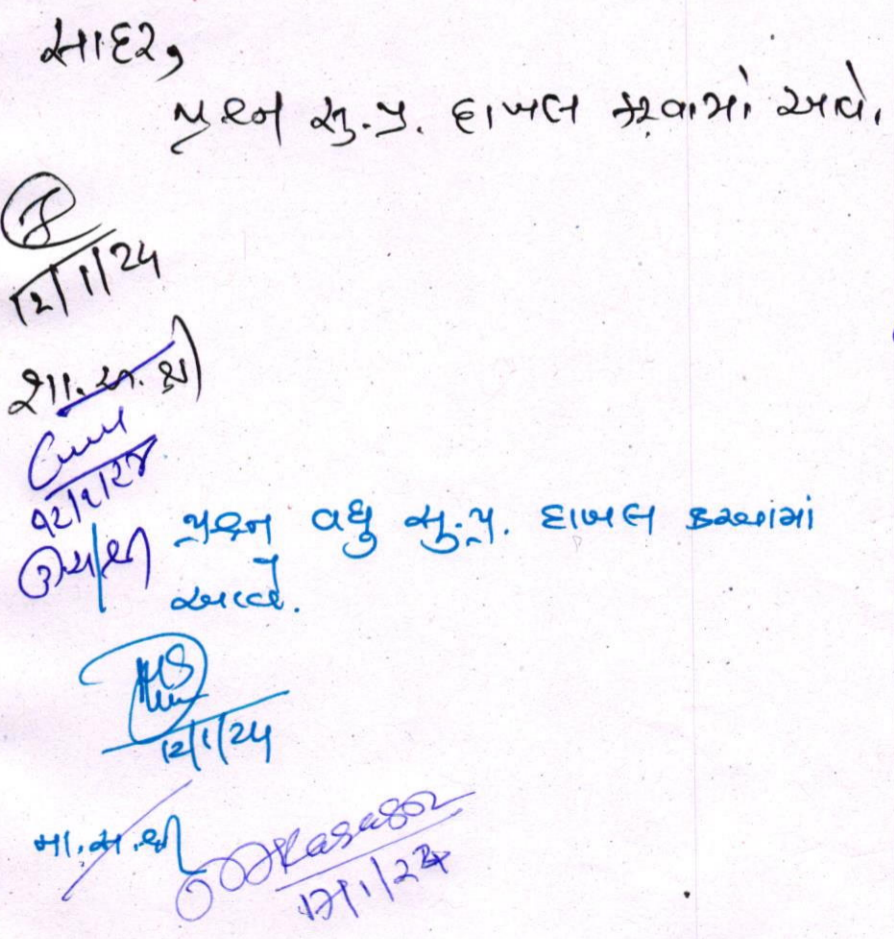 સાદર,
પ્રશ્ન સુ.પ્ર. દાખલ કરવામાં આવે.
12/1/24
શા.અ.શ્રી
૧૨/૧/૨૪
ઉ.સ.શ્રી
પ્રશ્ન વધુ સુ.પ્ર. દાખલ કરવામાં
આવે.
12/1/24
મા.સ.શ્રી
17/1/24